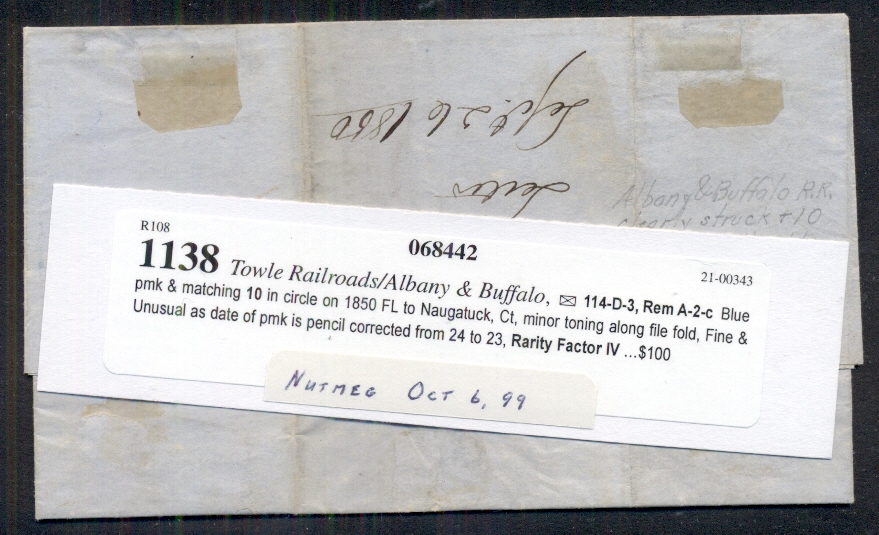 Sept. 26 1850
Albany & Buffalo R.R.
clearly struck +10
R108
068442
21-00343
1138 Towle Railroads/Albany & Buffalo, ✉ 114-D-3, Rem A-2-c Blue
pmk & matching 10 in circle on 1850 FL to Naugatuck, Ct, minor toning along file fold, Fine &
Unusual as date of pmk is pencil corrected from 24 to 23, Rarity Factor IV ...$100
NUTMEG OCT 6, 99